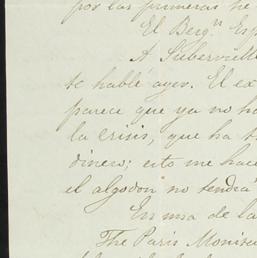 por las primeras he
El Bergn Esp
A Subervielle
te hablé ayer. El ex
parece que ya no ha
la crisis, que ha t
dinero; esto me hace
el algodon no tendrá
En una de la
The Paris